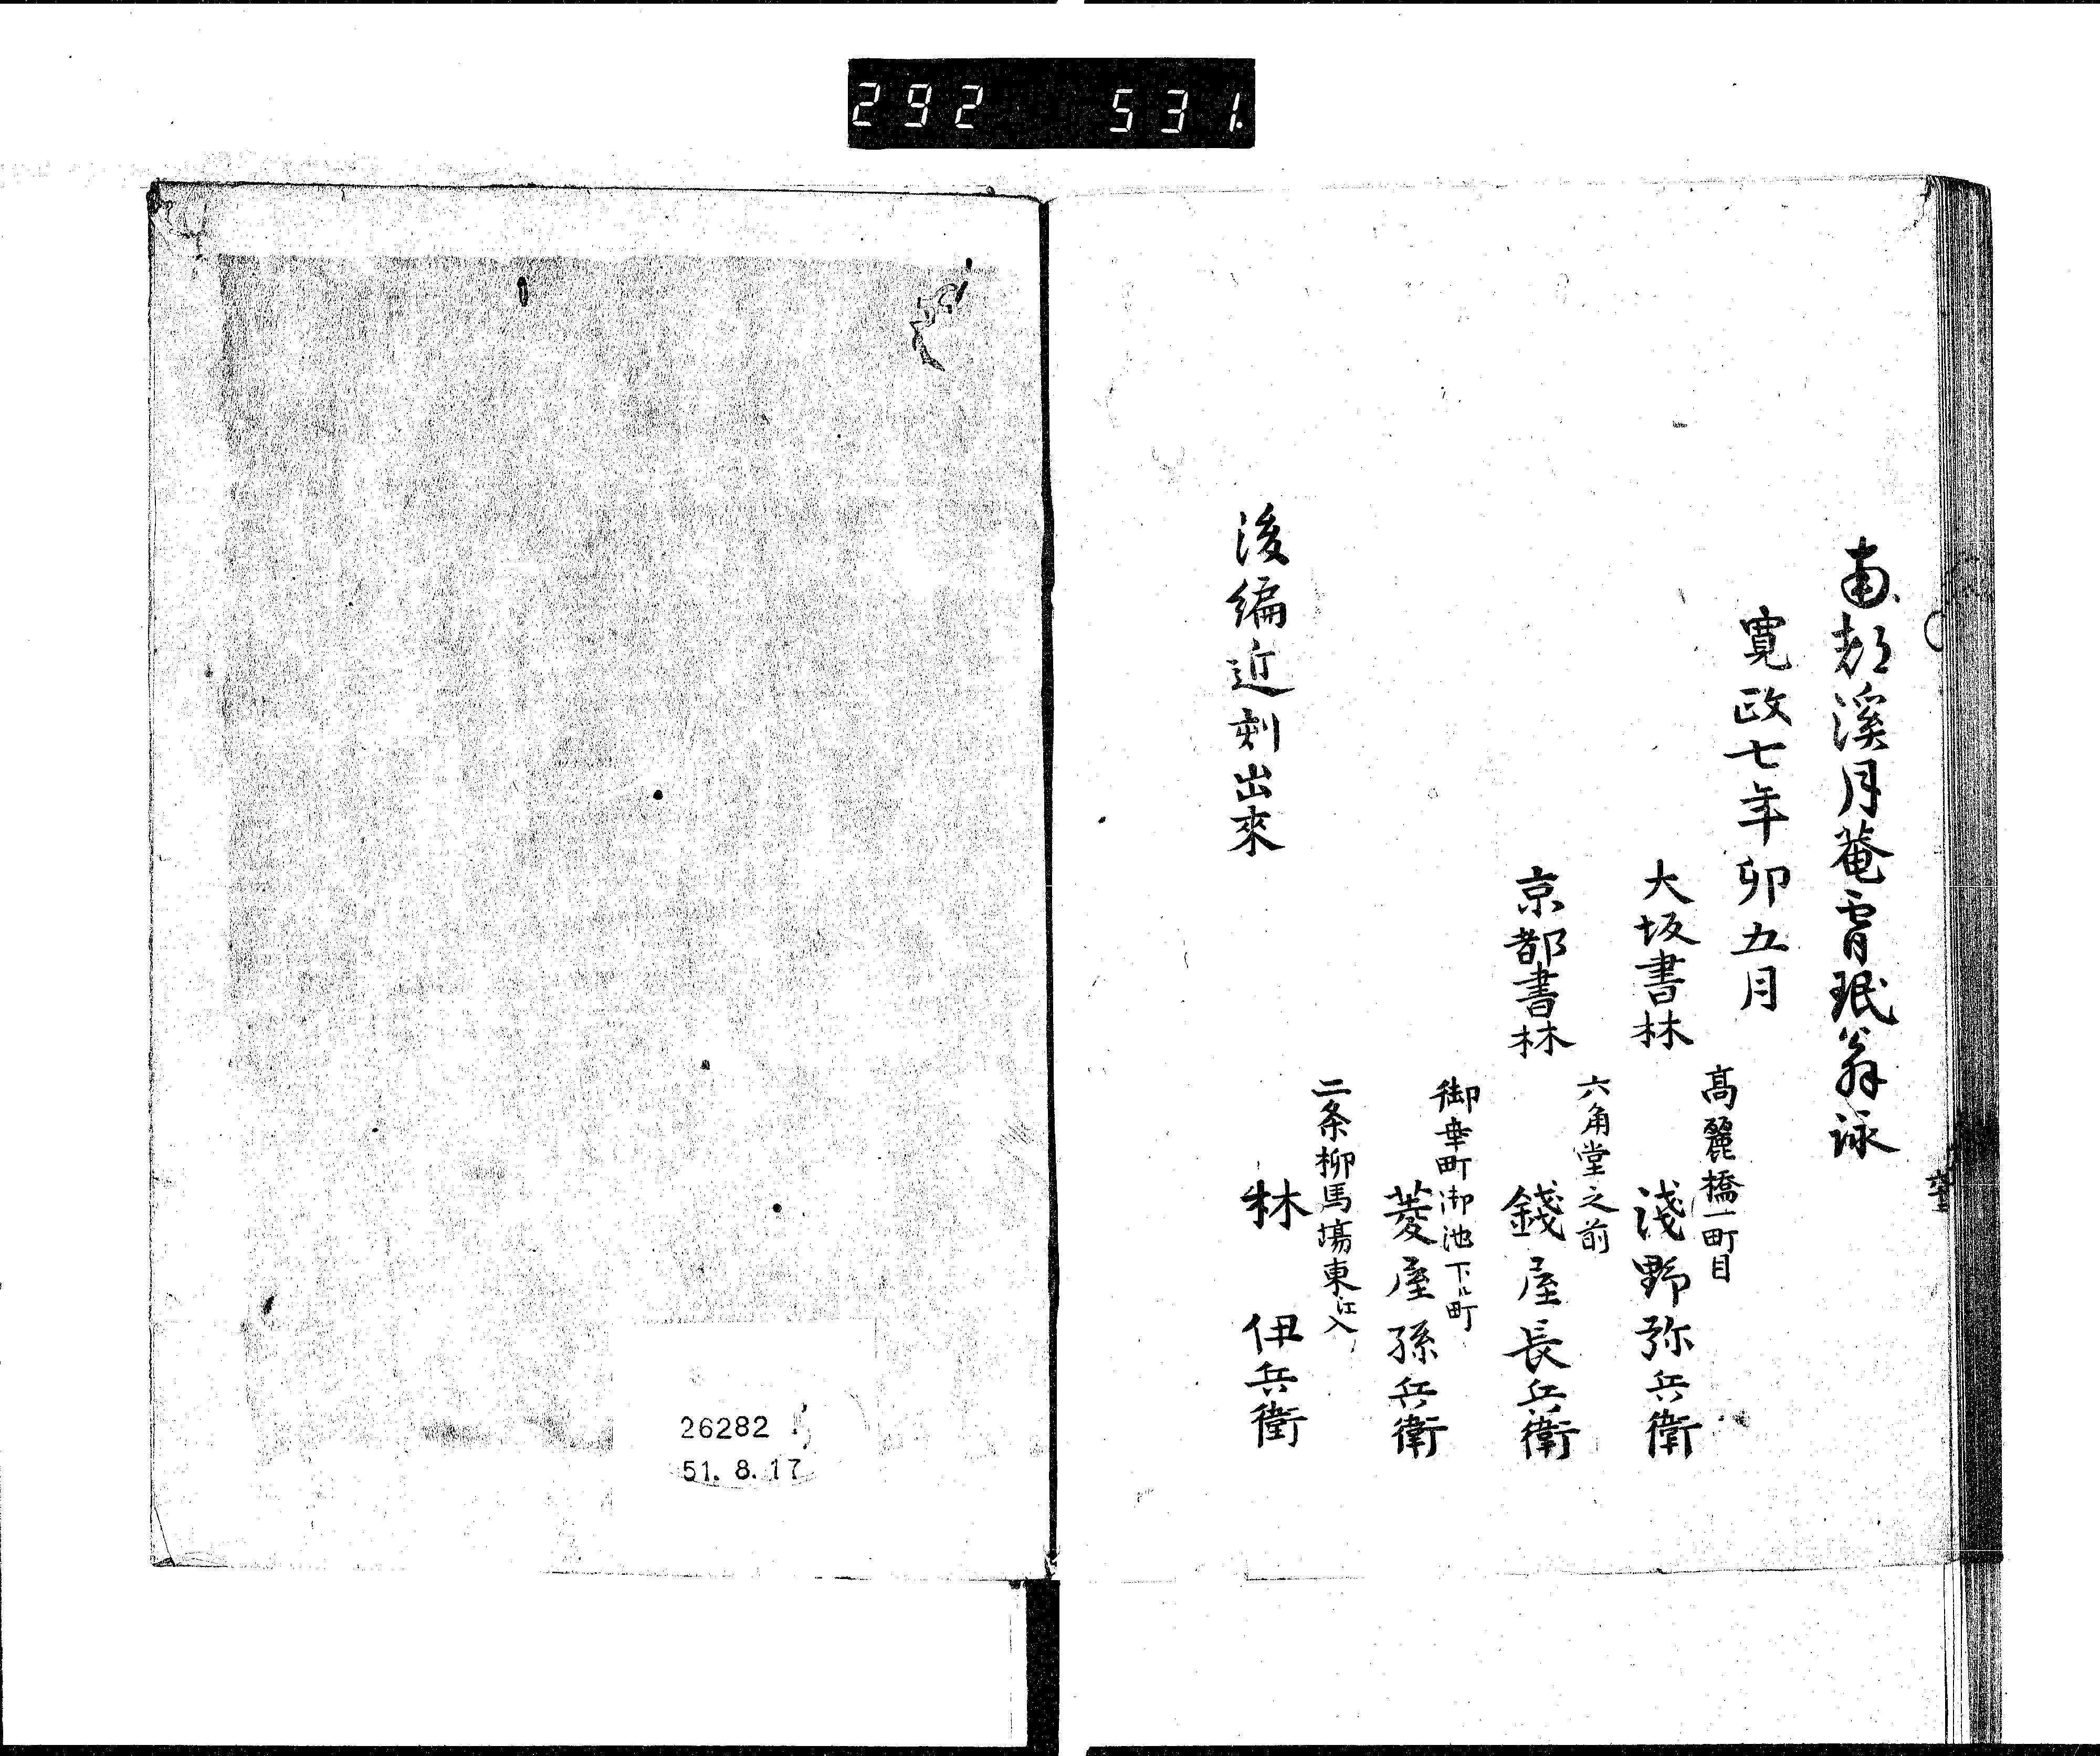 292 531.
南都溪月菴霄珉翁詠
寛政七年卯五月
大坂書林
高麗橋一町目
淺野弥兵衛
京都書林
六角堂之前
錢屋長兵衛
御幸町御池下ル町
菱屋孫兵衛
二条柳馬場東江入
林 伊兵衛
後編近刻出來
26282
51. 8. 17